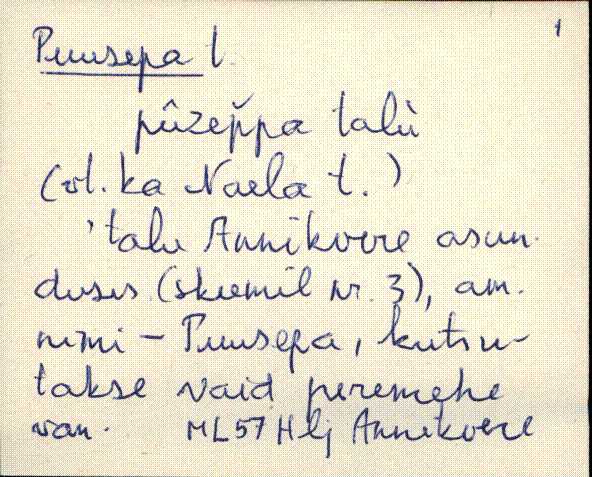 1
Puusepa t.
pûzep̆pa talù
(vt. ka Naela t.)
'talu Annikvere asun-
duses (skeemil nr. 3), am.
nimi – Puusepa, kutsu-
takse vaid peremehe
van. ML57 Hlj Annikvere